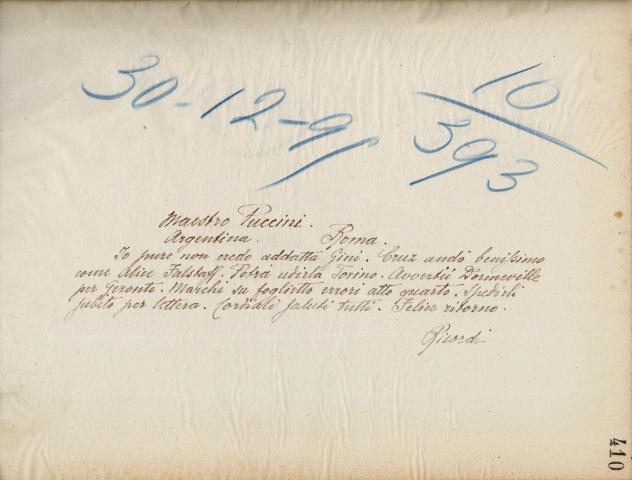 30-12-95
10/393
Maestro Puccini.
Argentina. Roma.
Io pure non credo addatta Gini. Cruz andò benissimo
come Alice Falstaff. Potrà udirla Torino. Avvertii Dormeville
per Geronte. Marchi su foglietto errori atto quarto. Spedirli
subito per lettera. Cordiali saluti tutti. Felice ritorno.
Ricordi
410